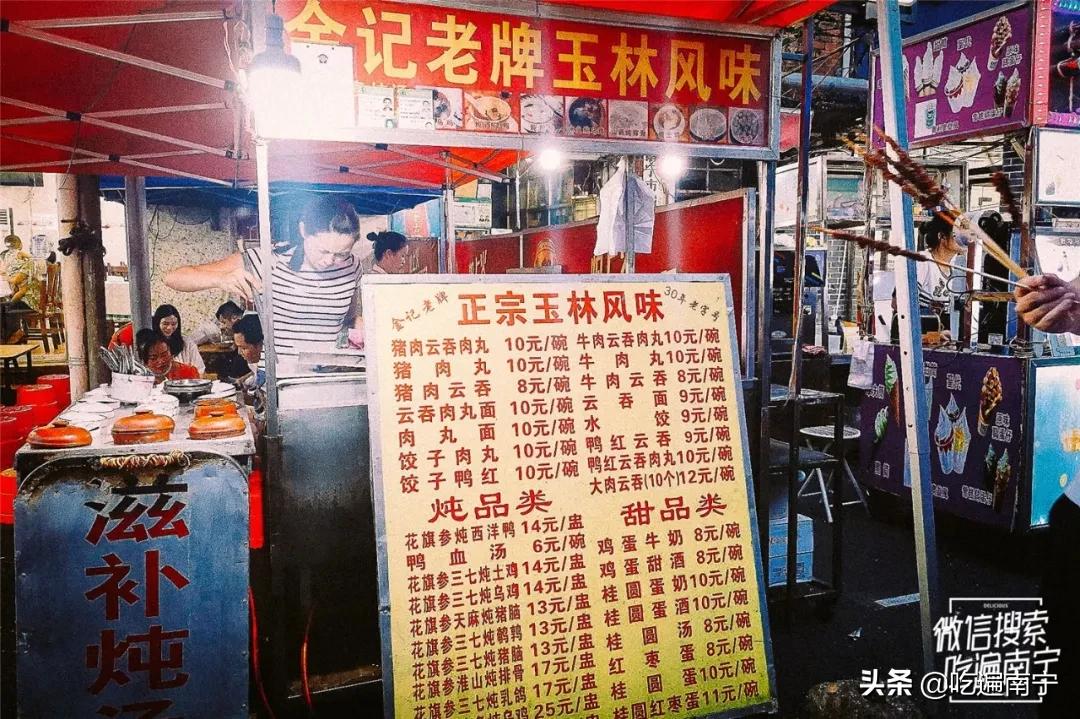 金记老牌玉林风味
金记老牌
正宗玉林风味
30年老字号
猪肉云吞肉丸 10元/碗
猪肉丸 10元/碗
猪肉云吞 8元/碗
云吞肉丸面 10元/碗
肉丸面 10元/碗
饺子肉丸 10元/碗
饺子鸭红 10元/碗
牛肉云吞肉丸 10元/碗
牛肉丸 10元/碗
牛肉云吞 8元/碗
云吞面 9元/碗
水饺 9元/碗
鸭红云吞 9元/碗
鸭红云吞肉丸 10元/碗
大肉云吞(10个) 12元/碗
炖品类
花旗参炖西洋鸭 14元/盅
鸭血汤 6元/碗
花旗参三七炖土鸡 14元/盅
花旗参三七炖乌鸡 14元/盅
花旗参天麻炖猪脑 13元/盅
花旗参三七炖鹌鹑 13元/盅
花旗参三七炖猪脑 13元/盅
花旗参淮山炖排骨 17元/盅
花旗参三七炖乳鸽 17元/盅
25元/盅
甜品类
鸡蛋牛奶 8元/碗
鸡蛋甜酒 8元/碗
桂圆蛋奶 10元/碗
桂圆蛋酒 10元/碗
桂圆汤 8元/碗
红枣蛋 8元/碗
桂圆蛋 10元/碗
桂圆红枣蛋 11元/碗
滋补炖汤
DELICIOUS
微信搜索
吃遍南宁
头条 @吃遍南宁